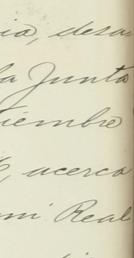 ia, desa
la Junta
iembre
, acerca
mi Real